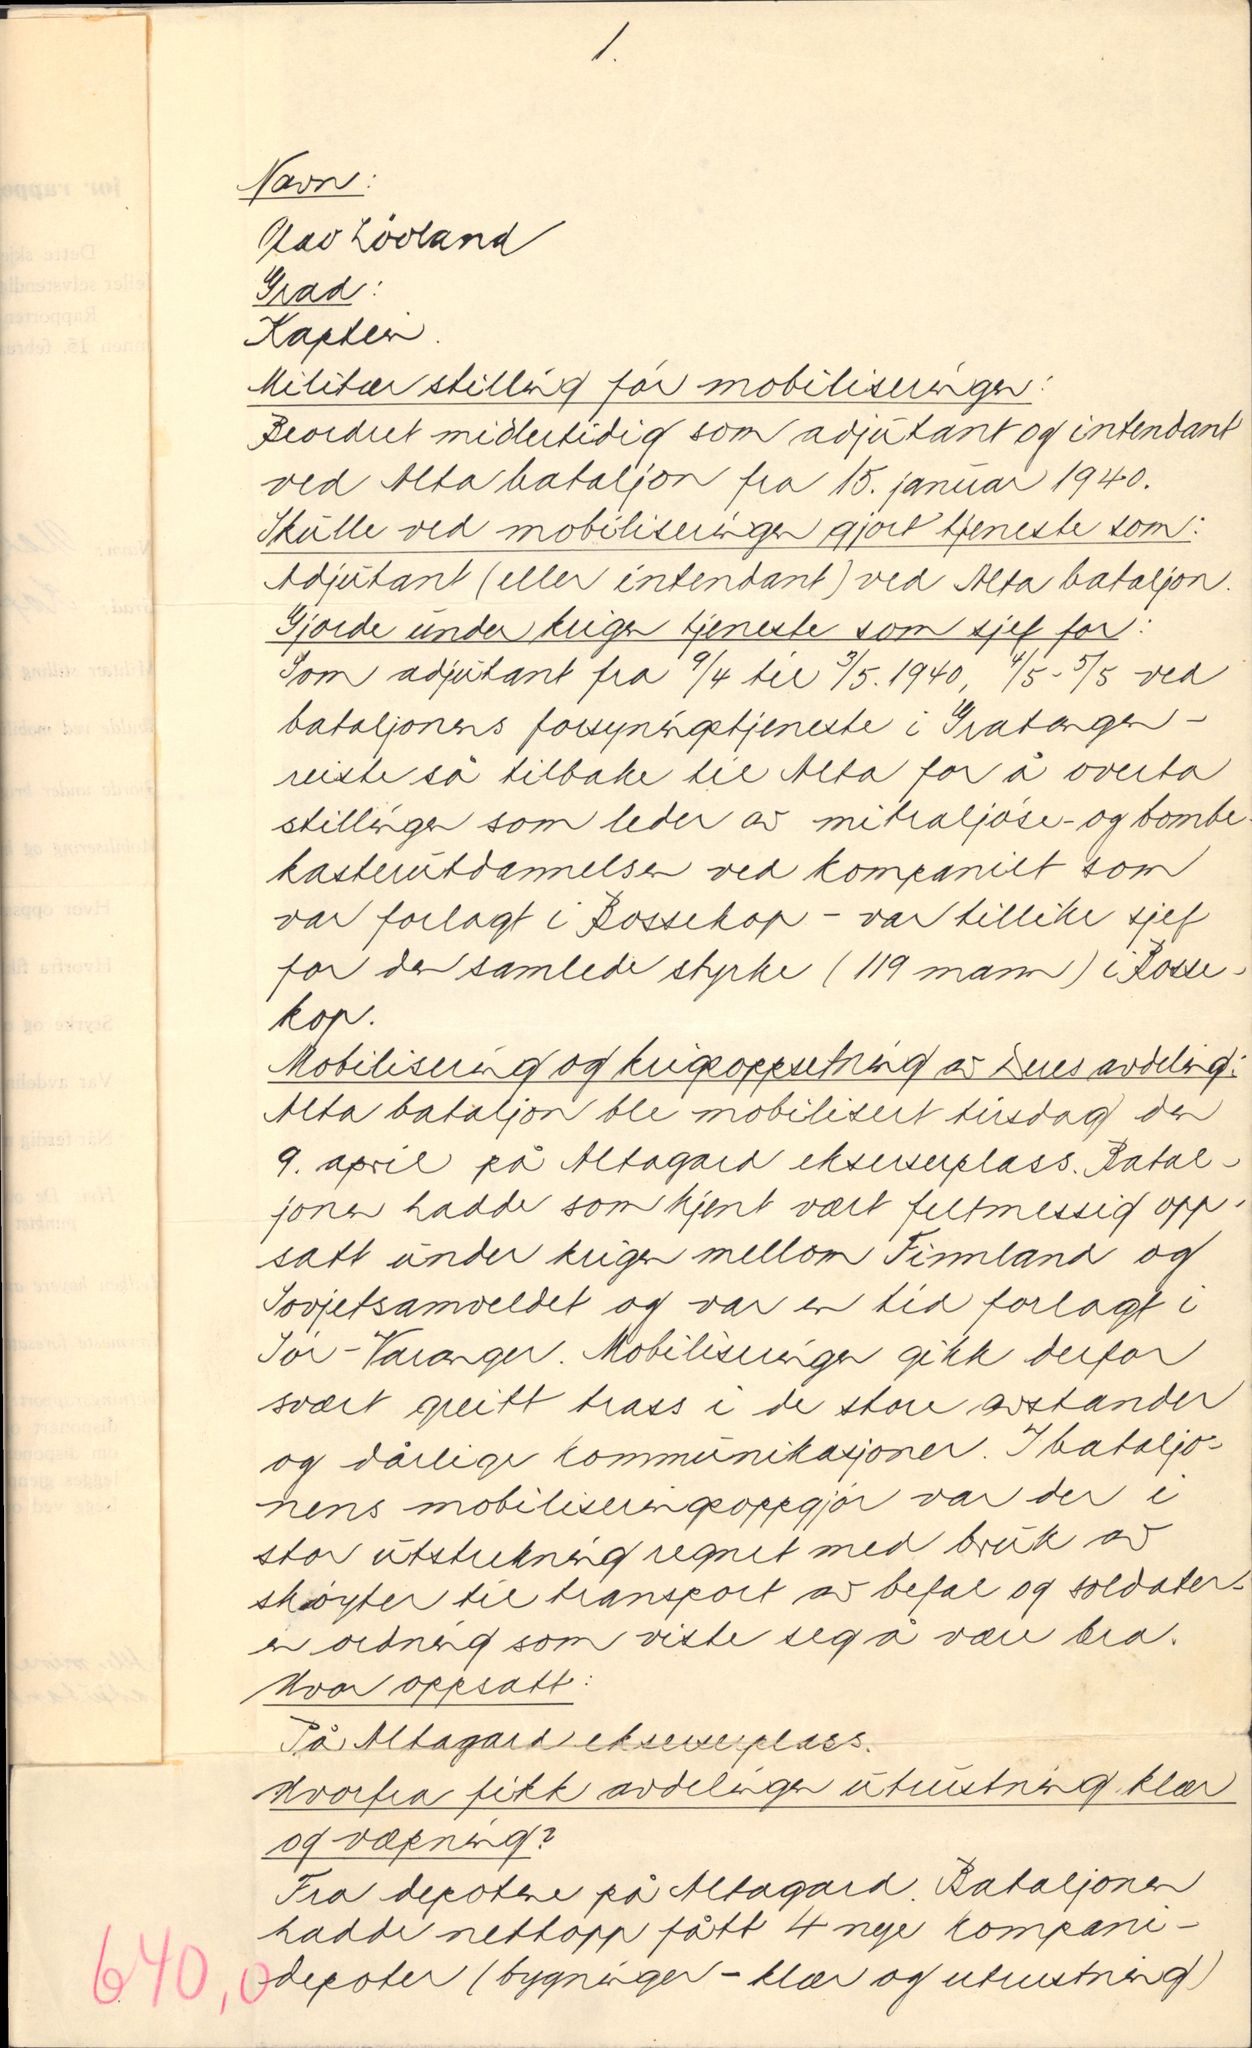 1.
Navn:
Olav Lövland
Grad:
Kaptein.
Militær stilling för mobiliseringen:
Beordret midlertidig som adjutant og intendant
ved Alta bataljon fra 15. januar 1940.
Skulle ved mobiliseringen gjort tjeneste som:
Adjutant (eller intendant) ved Alta bataljon.
Gjorde under krigen tjeneste som sjef for:
Som adjutant fra 9/4 til 3/5. 1940, 4/5-5/5 ved
bataljonens forsyningstjeneste i Gratangen -
reiste så tilbake til Alta for å overta
stillingen som leder av mitraljöse- og bombe-
kasterutdannelsen ved kompaniet som
var forlagt i Bossekop - var tillike sjef
for den samlede styrke (119 mann) i Bosse-
kop.
Mobilisering og krigsoppsetning av Deres avdeling:
Alta bataljon ble mobilisert tirsdag den
9. april på Altagard ekserserplass. Batal-
jonen hadde som kjent vært feltmessig opp-
satt under krigen mellom Finnland og
Sovjetsamveldet og var en tid forlagt i
Sör-Varanger. Mobiliseringen gikk derfor
svært greitt trass i de store avstander
og dårlige kommunikasjoner. I bataljo-
nens mobiliseringsoppgjör var der i
stor utstrekning regnet med bruk av
sköyter til transport av befal og soldater-
en ordning som viste seg å være bra.
Hvor oppsatt:
På Altagard ekserserplass.
Hvorfra fikk avdelingen utrustning klær
og væpning?
Fra depotene på Altagard. Bataljonen
hadde nettopp fått 4 nye kompani-
depoter (bygninger - klær og utrustning)
640,0